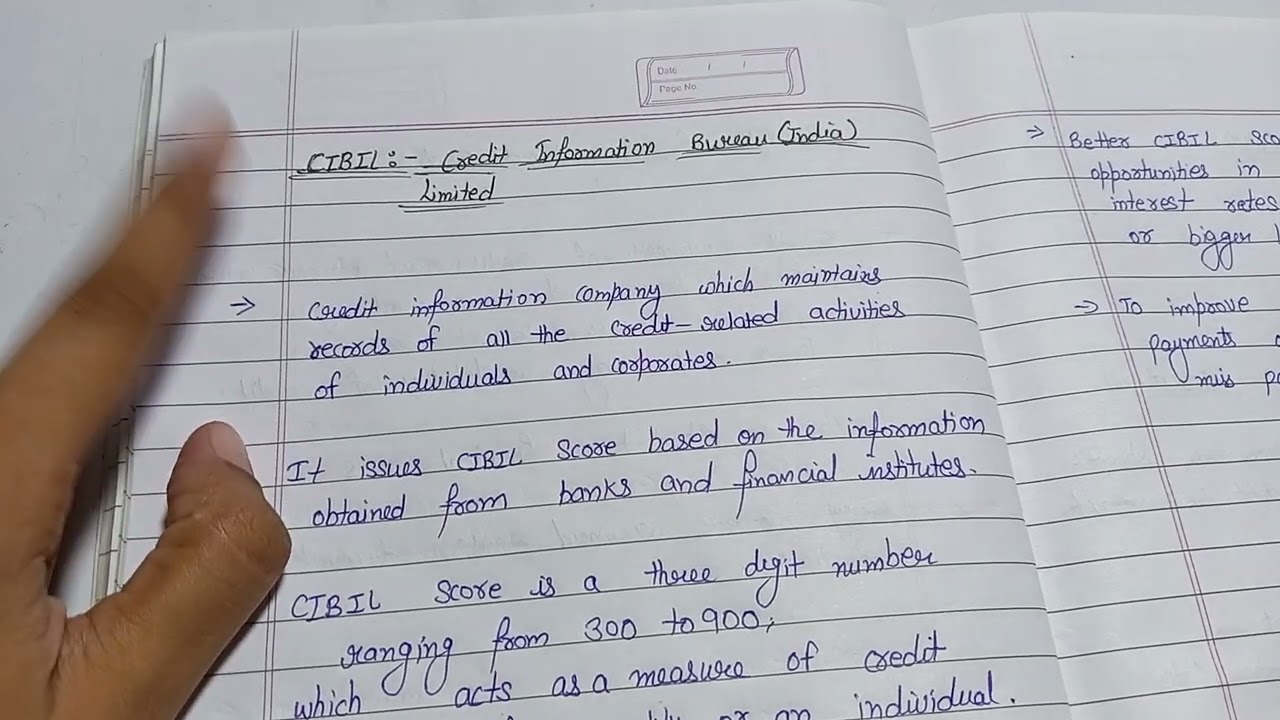 Date / /
Page No.
CIBIL:- Credit Information Bureau (India)
Limited
→ Credit information company which maintains
records of all the credit-related activities
of individuals and corporates.
It issues CIBIL Score based on the information
obtained from banks and financial institutes.
CIBIL Score is a three digit number
ranging from 300 to 900;
which acts as a measure of credit
or an individual.
⇒ Better CIBIL
opportunities in
interest rates
or bigger
⇒ To improve
payments
mis